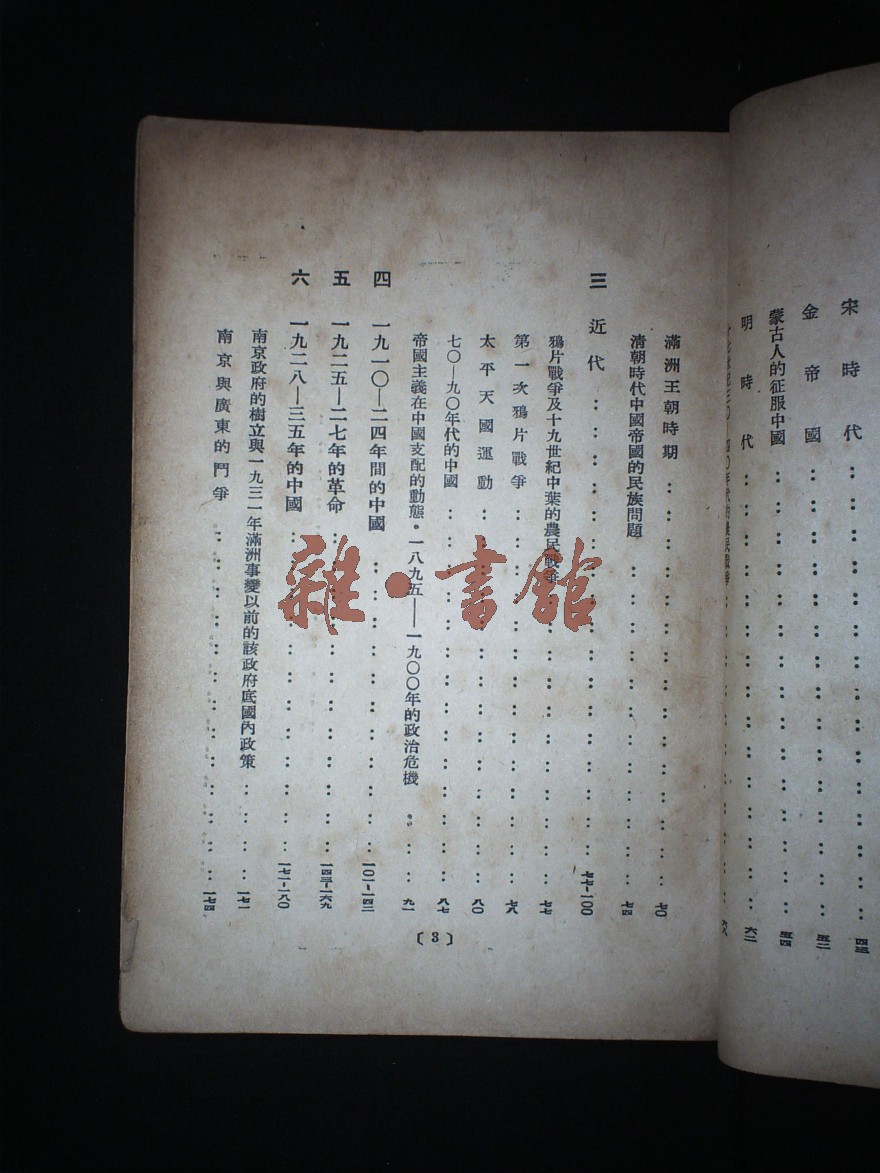 宋時代 四三
金帝國 五二
蒙古人的征服中國 五四
明時代 六二
滿洲王朝時期 七〇
清朝時代中國帝國的民族問題 七四
三 近代 七七-一〇〇
鴉片戰爭及十九世紀中葉的農民戰爭 七七
第一次鴉片戰爭 七八
太平天國運動 八〇
七〇—九〇年代的中國 八七
帝國主義在中國支配的動態・一八九五——一九〇〇年的政治危機 九一
四 一九一〇—二四年間的中國 一〇一-一四二
五 一九二五—二七年的革命 一四三-一六九
六 一九二八—三五年的中國 一七一-一八〇
南京政府的樹立與一九三一年滿洲事變以前的該政府底國內政策 一七一
南京與廣東的鬥爭 一七四
〔3〕
雜・書館